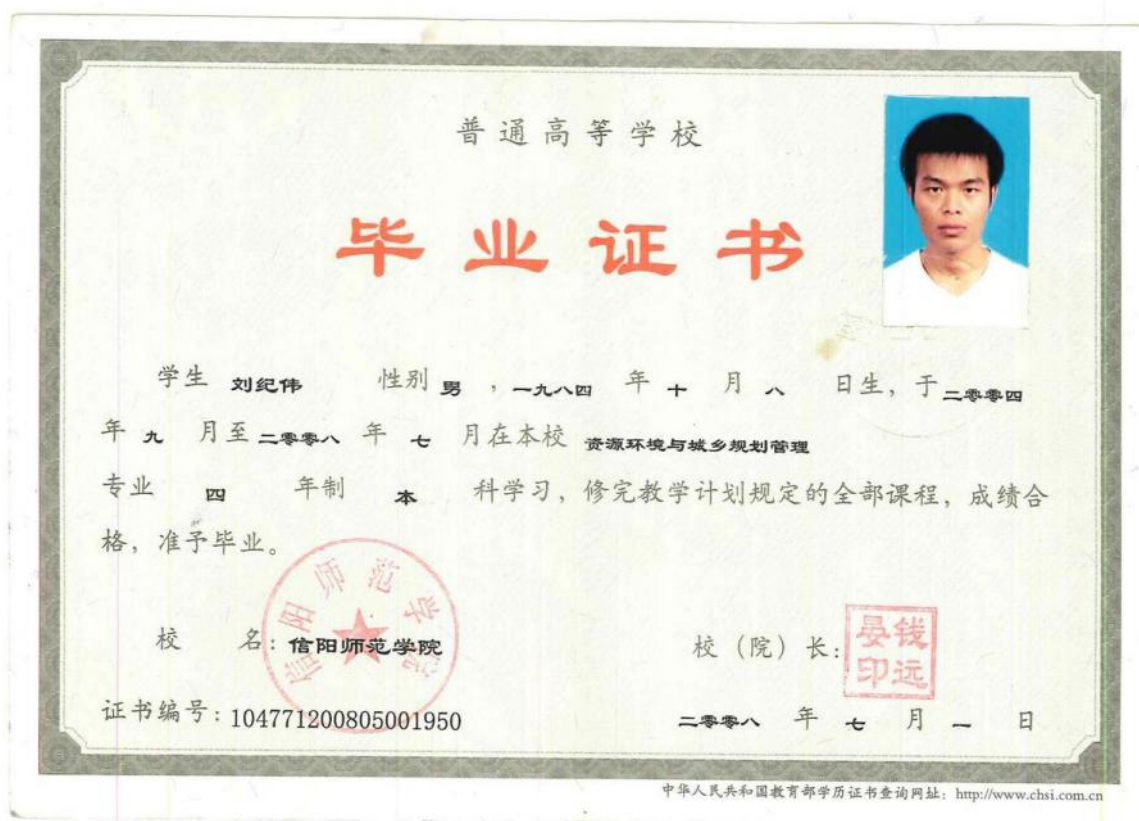 普通高等学校
毕业证书
学生 刘纪伟 性别 男 ，一九八四 年 十 月 八 日生，于 二零零四
年 九 月至 二零零八 年 七 月在本校 资源环境与城乡规划管理
专业 四 年制 本 科学习，修完教学计划规定的全部课程，成绩合
格，准予毕业。
信阳师范学院
校 名：信阳师范学院 校（院）长：
钱远晏印
证书编号：104771200805001950 二零零八 年 七 月 一 日
中华人民共和国教育部学历证书查询网址：http://www.chsi.com.cn